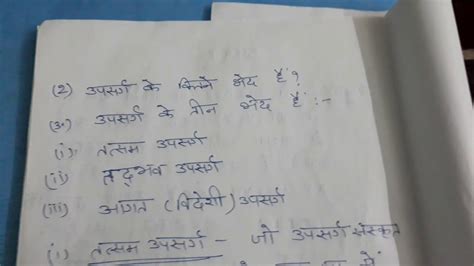 (2) उपसर्ग के कितने भेद हैं?
(उ०) उपसर्ग के तीन भेद हैं :-
(i) तत्सम उपसर्ग
(ii) तद्भव उपसर्ग
(iii) आगत (विदेशी) उपसर्ग
(i) तत्सम उपसर्ग - जो उपसर्ग संस्कृत
में